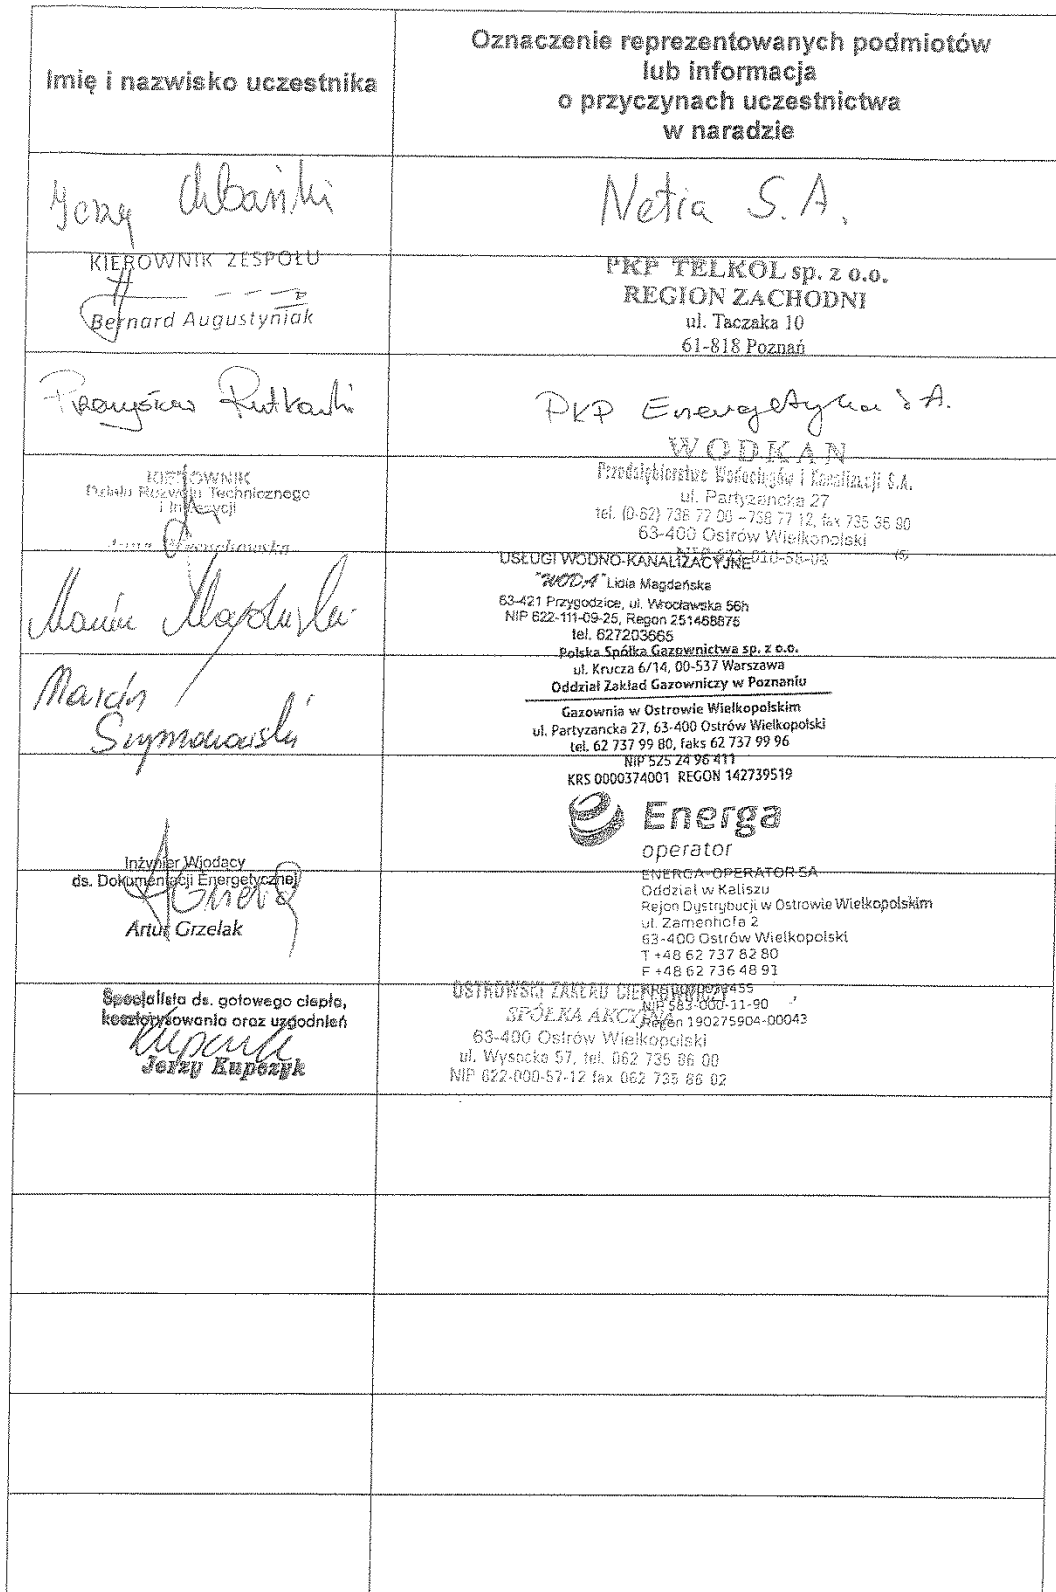 Imię i nazwisko uczestnika
Oznaczenie reprezentowanych podmiotów
lub informacja
o przyczynach uczestnictwa
w naradzie
Jerzy
Netia S.A.
KIEROWNIK ZESPOŁU
Bernard Augustyniak
PKP TELKOL sp. z o.o.
REGION ZACHODNI
ul. Taczaka 10
61-818 Poznań
Przemysław Rutkowski
PKP Energetyka S.A.
KIEROWNIK
Działu Rozwoju Technicznego
i Inwestycji
Anna
WODKAN
Przedsiębiorstwo Wodociągów i Kanalizacji S.A.
ul. Partyzancka 27
tel. (0-62) 738 77 00 – 738 77 12, fax 735 36 90
63-400 Ostrów Wielkopolski
Marcin
USŁUGI WODNO-KANALIZACYJNE
"WODA" Lidia Magdańska
63-421 Przygodzice, ul. Wrocławska 56h
NIP 622-111-09-25, Regon 251468876
tel. 627203665
Marcin
Szymanowski
Polska Spółka Gazownictwa sp. z o.o.
ul. Krucza 6/14, 00-537 Warszawa
Oddział Zakład Gazowniczy w Poznaniu
Gazownia w Ostrowie Wielkopolskim
ul. Partyzancka 27, 63-400 Ostrów Wielkopolski
tel. 62 737 99 80, faks 62 737 99 96
NIP 525 24 96 411
KRS 0000374001 REGON 142739519
Inżynier Wiodący
ds. Dokumentacji Energetycznej
Artur Grzelak
Energa
operator
ENERGA-OPERATOR SA
Oddział w Kaliszu
Rejon Dystrybucji w Ostrowie Wielkopolskim
ul. Zamenhofa 2
63-400 Ostrów Wielkopolski
T +48 62 737 82 80
F +48 62 736 48 91
NIP 583-000-11-90
Regon 190275904-00043
Specjalista ds. gotowego ciepła,
kosztorysowania oraz uzgodnień
Kupczyk
Jerzy Kupczyk
OSTROWSKI ZAKŁAD CIEPŁOWNICZY
SPÓŁKA AKCYJNA
63-400 Ostrów Wielkopolski
ul. Wysocka 57, tel. 062 735 86 00
NIP 622-000-57-12 fax 062 735 86 02